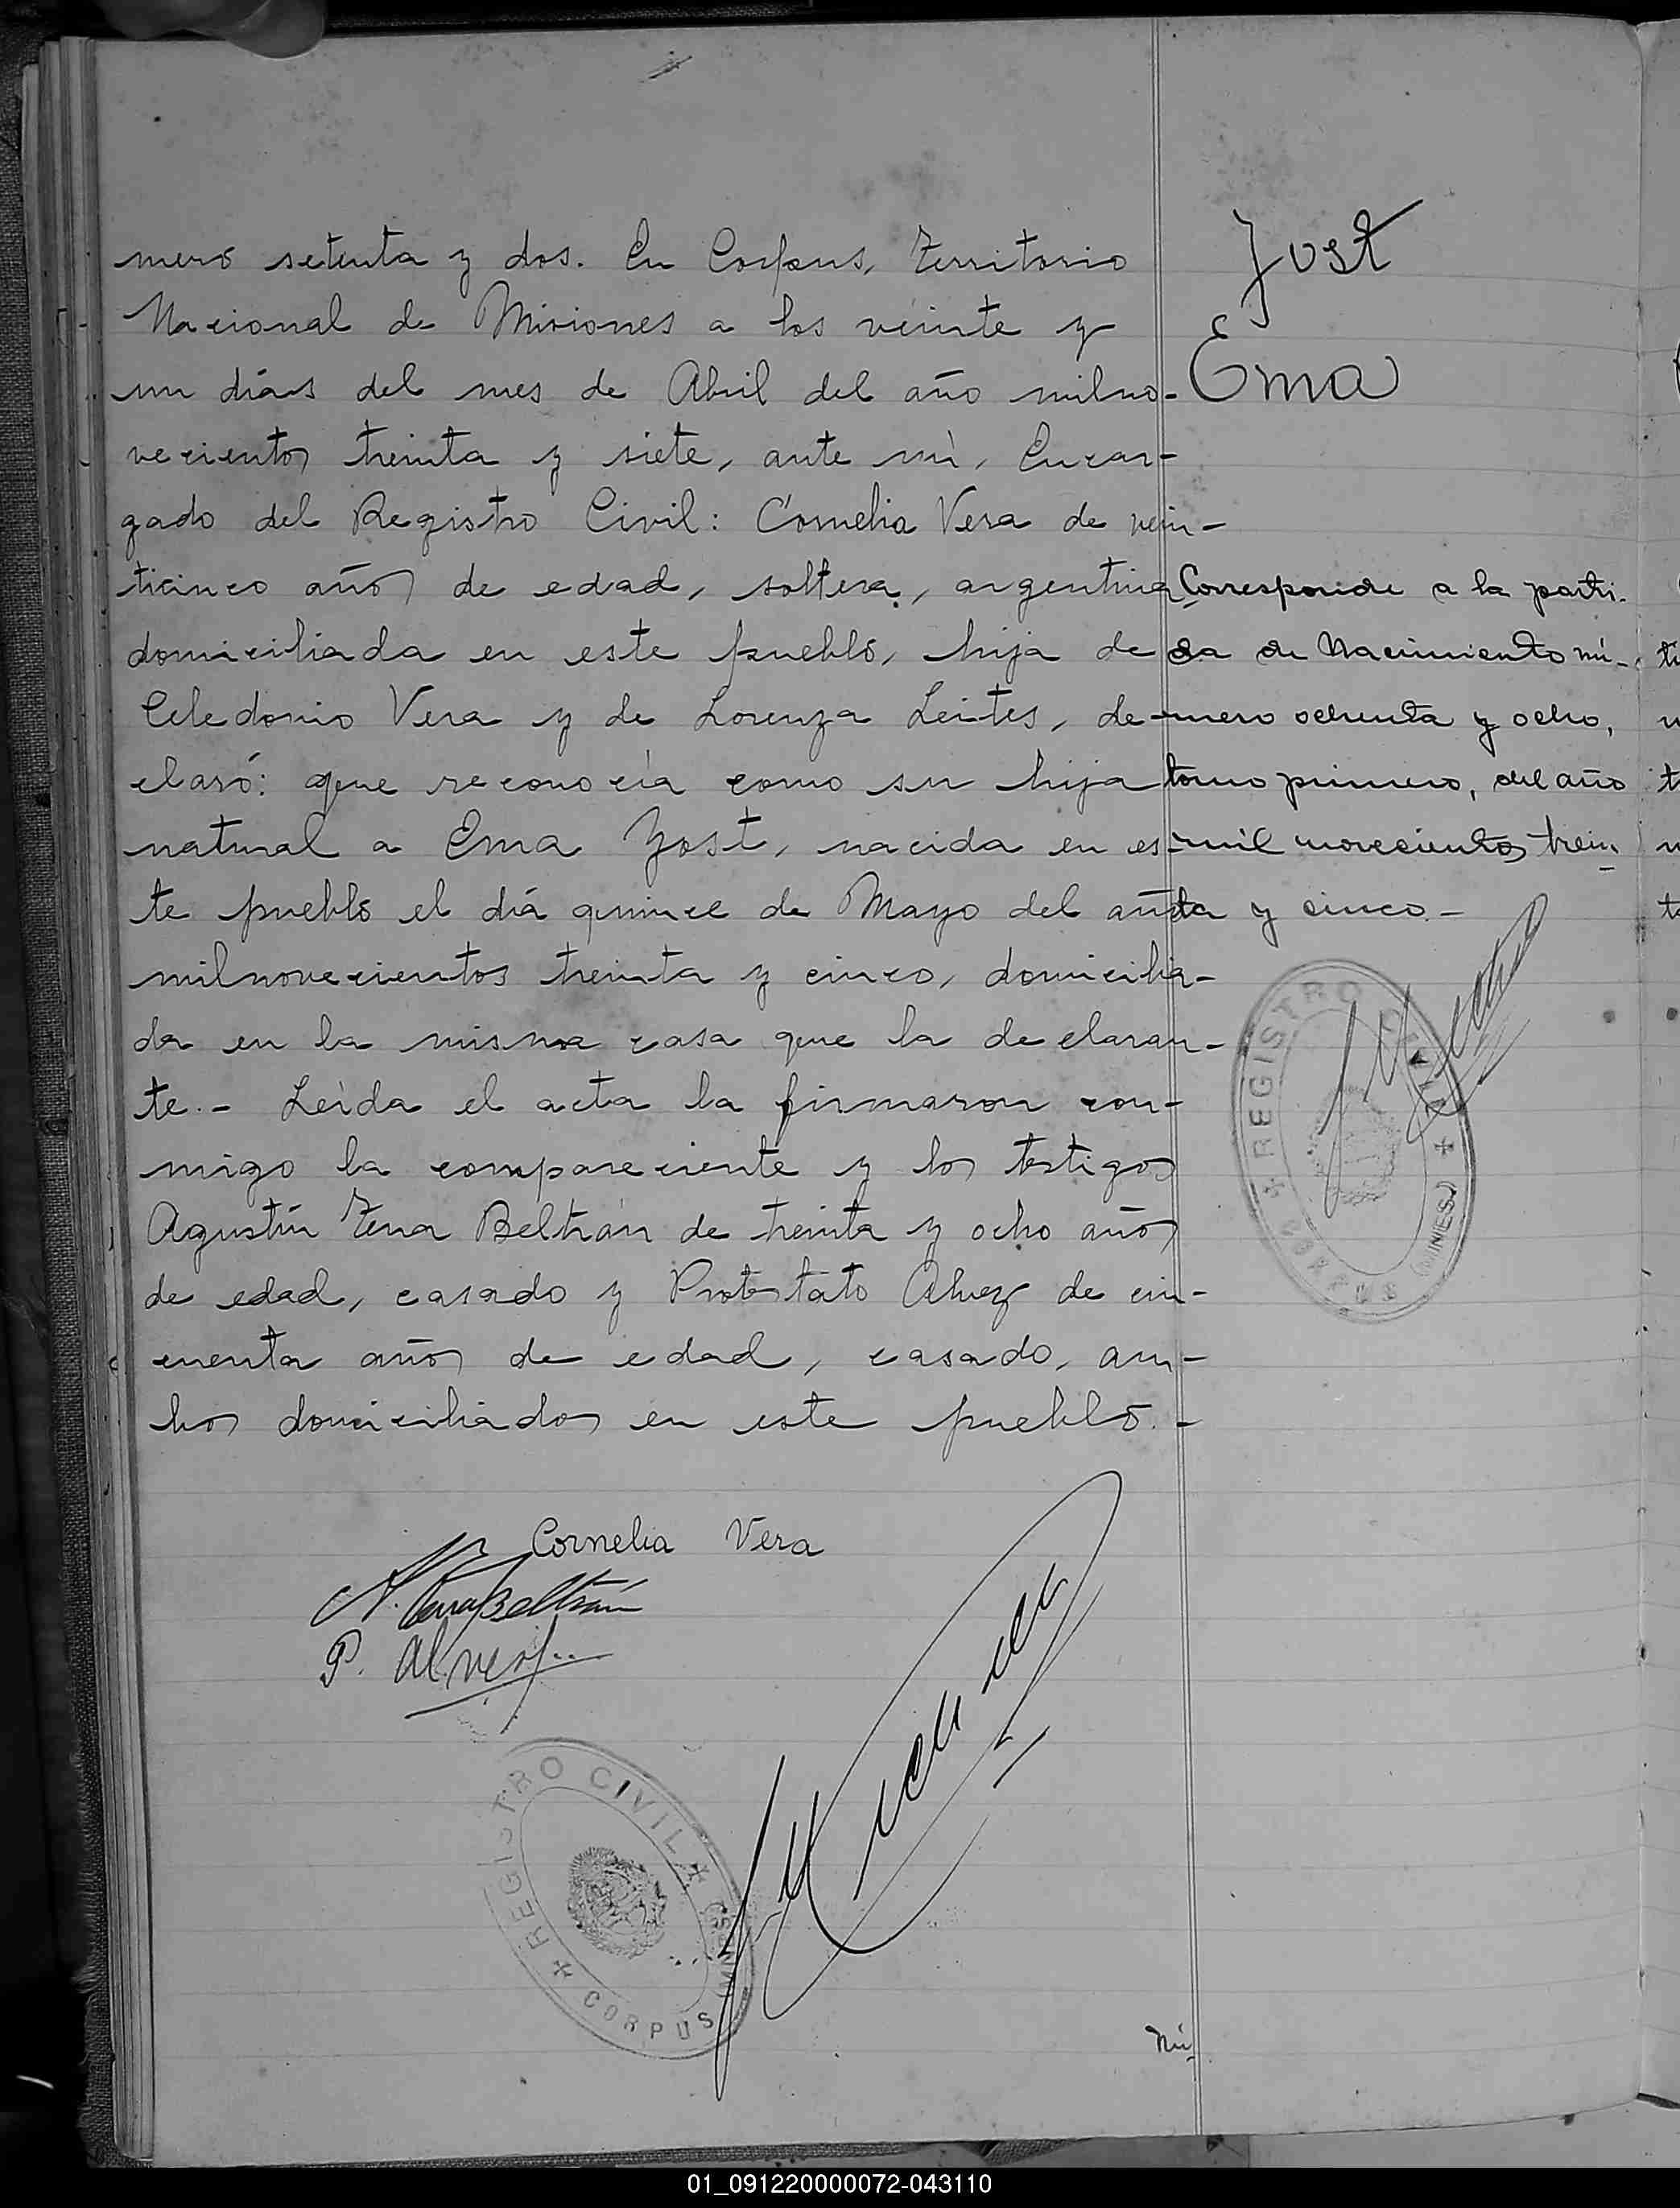 mero setenta y dos. En Corpus, Territorio
Nacional de Misiones a los veinte y
un días del mes de Abril del año milno-
vecientos treinta y siete, ante mí, Encar-
gado del Registro Civil: Cornelia Vera de vein-
ticinco años de edad, soltera, argentina
domiciliada en este pueblo, hija de
Celedonio Vera y de Lorenza Leites, de-
claró: que reconocía como su hija
natural a Ema Yost, nacida en es-
te pueblo el día quince de Mayo del año
milnovecientos treinta y cinco, domicilia-
da en la misma casa que la declaran-
te.- Leída el acta la firmaron con-
migo la compareciente y los testigos
Agustín Tena Beltrán de treinta y ocho años
de edad, casado y Protestato Alvez de cin-
cuenta años de edad, casado, am-
bos domiciliados en este pueblo.-
Cornelia Vera
A. Tena Beltrán
P. Alvez
REGISTRO CIVIL
CORPUS (MNES.)
Nú-
Yost
Ema
Corresponde a la parti-
da de Nacimiento nú-
mero ochenta y ocho,
tomo primero, del año
mil novecientos trein-
ta y cinco.-
REGISTRO CIVIL
CORPUS (MNES.)
01_091220000072-043110